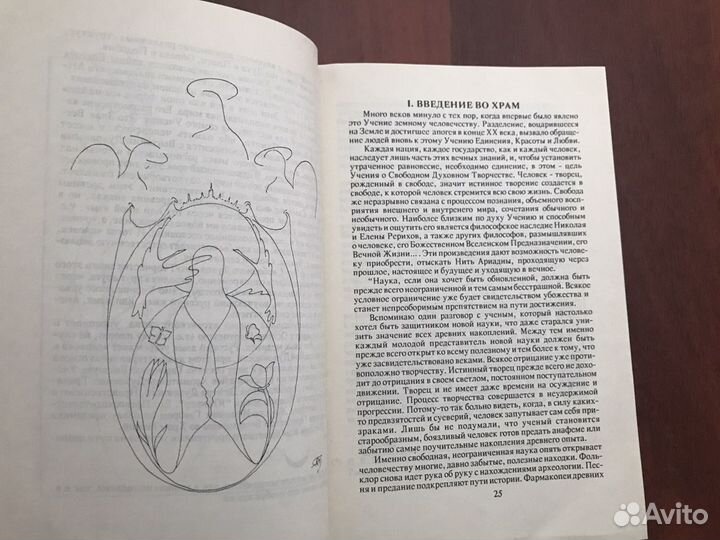 I. ВВЕДЕНИЕ ВО ХРАМ
Много веков минуло с тех пор, когда впервые было явлено
это Учение земному человечеству. Разделение, воцарившееся
на Земле и достигшее апогея в конце XX века, вызвало обраще-
ние людей вновь к этому Учению Единения, Красоты и Любви.
Каждая нация, каждое государство, как и каждый человек,
наследует лишь часть этих вечных знаний, и, чтобы установить
утраченное равновесие, необходимо единение, в этом - цель
Учения о Свободном Духовном Творчестве. Человек - творец,
рожденный в свободе, значит истинное творение создается в
свободе, к которой человек стремится всю свою жизнь. Свобода
же неразрывно связана с процессом познания, объемного восп-
риятия внешнего и внутреннего мира, сочетания обычного и
необычного. Наиболее близким по духу Учению и способным
увидеть и ощутить его является философское наследие Николая
и Елены Рерихов, а также других философов, размышлявших
о человеке, его Божественном Вселенском Предназначении, его
Вечной Жизни.... Эти произведения дают возможность челове-
ку приобрести, отыскать Нить Ариадны, проходящую через
прошлое, настоящее и будущее и уходящую в вечное.
"Наука, если она хочет быть обновленной, должна быть
прежде всего неограниченной и тем самым бесстрашной. Всякое
условное ограничение уже будет свидетельством убожества и
станет непреоборимым препятствием на пути достижения.
Вспоминаю один разговор с ученым, который настолько
хотел быть защитником новой науки, что даже старался уни-
зить значение всех древних накоплений. Между тем именно
каждый молодой представитель новой науки должен быть
прежде всего открыт ко всему полезному и тем более к тому, что
уже засвидетельствовано веками. Всякое отрицание уже проти-
воположно творчеству. Истинный творец прежде всего не дохо-
дит до отрицания в своем светлом, постоянном поступательном
движении. Творец и не имеет даже времени на осуждение и
отрицание. Процесс творчества совершается в неудержимой
прогрессии. Потому-то так больно видеть, когда, в силу каких-
то предвзятостей и суеверий, человек запутывает сам себя при-
зраками. Лишь бы не подумали, что ученый становится
старообразным, боязливый человек готов предать анафеме или
забытию самые поучительные накопления древнего опыта.
Именно свободная, неограниченная наука опять открывает
человечеству многие, давно забытые, полезные находки. Фоль-
клор снова идет рука об руку с нахождениями археологии. Пес-
ня и предание подкрепляют пути истории. Фармакопеи древних
25
Avito